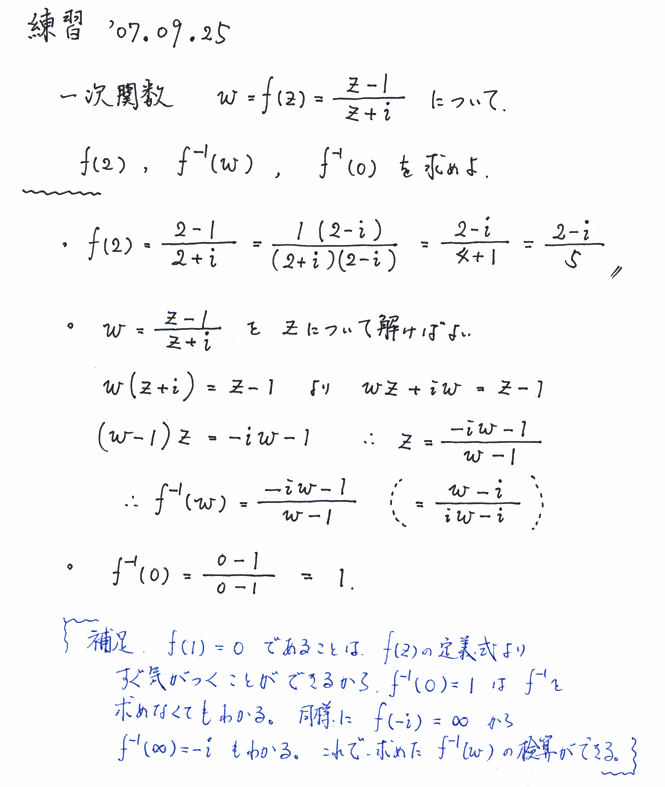 練習 '07.09.25
一次関数 w = f(z) = (z-1)/(z+i) について.
f(2), f⁻¹(w), f⁻¹(0) を求めよ.
・ f(2) = (2-1)/(2+i) = 1(2-i)/((2+i)(2-i)) = (2-i)/(4+1) = (2-i)/5 〃
。 w = (z-1)/(z+i) を z について解けばよい
w(z+i) = z-1 より wz+iw = z-1
(w-1)z = -iw-1 ∴ z = (-iw-1)/(w-1)
∴ f⁻¹(w) = (-iw-1)/(w-1) ( = (w-i)/(iw-i) )
。 f⁻¹(0) = (0-1)/(0-1) = 1.
{ 補足. f(1)=0 であることは. f(z)の定義式より
すぐ気がつくことができるから. f⁻¹(0)=1 は f⁻¹を
求めなくてもわかる。 同様に f(-i)=∞ から
f⁻¹(∞)=-i もわかる。 これで.求めた f⁻¹(w) の検算ができる。}